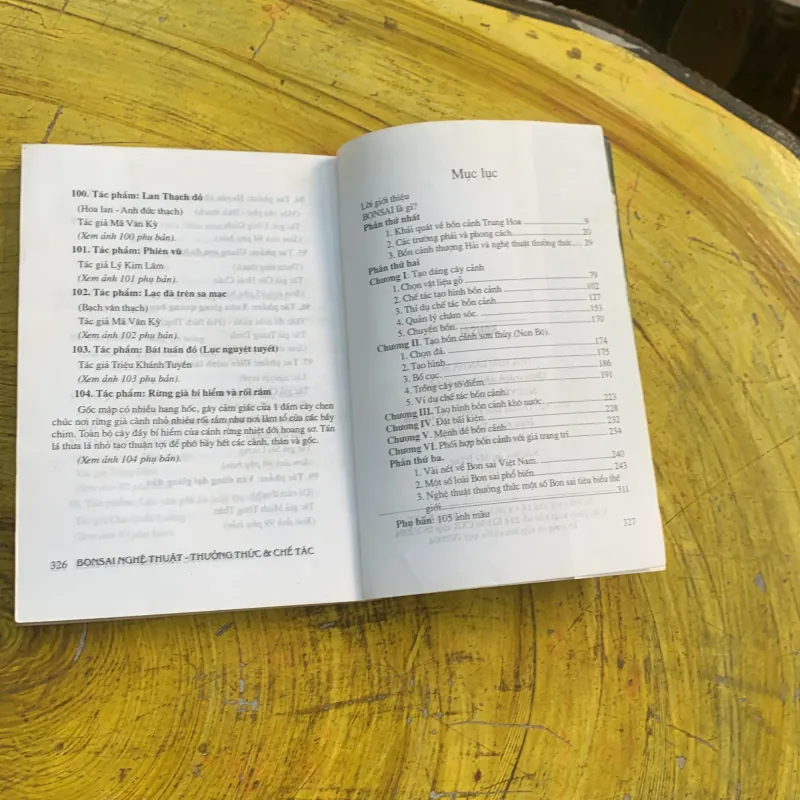 100. Tác phẩm: Lan Thạch đồ
(Hoa lan - Anh đức thạch)
Tác giả Mã Văn Kỳ
(Xem ảnh 100 phụ bản).
101. Tác phẩm: Phiên vũ
Tác giả Lý Kim Lâm
(Xem ảnh 101 phụ bản).
102. Tác phẩm: Lạc đà trên sa mạc
(Bạch vân thạch)
Tác giả Mã Văn Kỳ
(Xem ảnh 102 phụ bản).
103. Tác phẩm: Bát tuấn đồ (Lục nguyệt tuyết)
Tác giả Triệu Khánh Tuyền
(Xem ảnh 103 phụ bản).
104. Tác phẩm: Rừng già bí hiểm và rối rắm
Gốc mập có nhiều hang hốc, gây cảm giác của 1 đám cây chen
chúc nơi rừng già cành nhỏ nhiều rối rắm như nơi làm tổ của các bầy
chim. Toàn bộ cây đầy bí hiểm của cánh rừng nhiệt đới hoang sơ. Tán
lá thưa lá nhỏ tạo thuận tợi để phô bày hết các cành, thân và gốc.
(Xem ảnh 104 phụ bản).
326 BONSAI NGHỆ THUẬT - THƯỞNG THỨC & CHẾ TÁC
Mục lục
Lời giới thiệu
BONSAI là gì?
Phần thứ nhất
1. Khái quát về bồn cảnh Trung Hoa 9
2. Các trường phái và phong cách 20
3. Bồn cảnh thượng Hải và nghệ thuật thưởng thức 29
Phần thứ hai
Chương I: Tạo dáng cây cảnh
1. Chọn vật liệu gỗ 79
2. Chế tác tạo hình bồn cảnh 102
3. Thí dụ chế tác bồn cảnh 127
4. Quản lý chăm sóc. 153
5. Chuyển bồn. 170
Chương II. Tạo bồn cảnh sơn thủy (Non Bộ).
1. Chọn đá. 174
2. Tạo hình 175
3. Bố cục. 186
4. Trồng cây tô điểm 191
5. Ví dụ chế tác bồn cảnh
Chương III. Tạo hình bồn cảnh khô nước. 223
Chương IV. Đặt bãi kiện. 228
Chương V. Mệnh đề bồn cảnh. 232
Chương VI. Phối hợp bồn cảnh với giá trang trí. 234
Phần thứ ba.
1. Vài nét về Bon sai Việt Nam. 240
2. Một số loài Bon sai phổ biến. 243
3. Nghệ thuật thưởng thức một số Bon sai tiêu biểu thế
giới. 311
Phụ bản: 105 ảnh màu
327